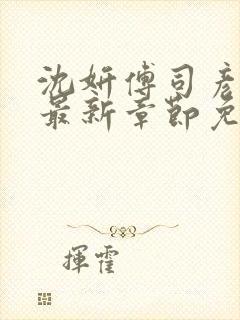 沈妍傅司彦
最新章節免
揮霍